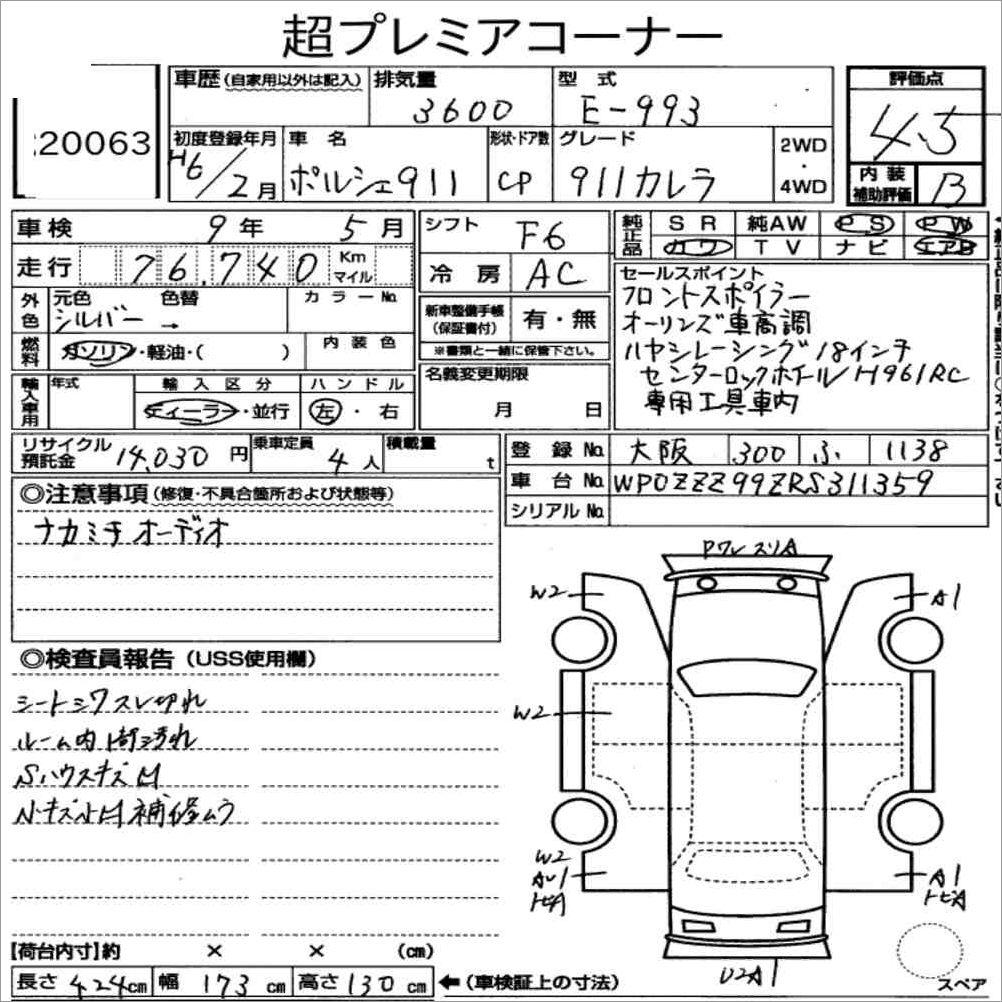 超プレミアコーナー
20063
車歴 (自家用以外は記入)
排気量
3600
型 式
E-993
評価点
4.5
初度登録年月
H6/2月
車 名
ポルシェ911
形状・ドア数
CP
グレード
911カレラ
2WD
・
4WD
内 装
補助評価
B
車検 9年 5月
走行 76,740 Km
マイル
外色
元色
シルバー →
色替
カラーNo.
燃料
ガソリン・軽油・( )
内 装 色
輸入車用
年式
輸 入 区 分
ディーラー・並行
ハ ン ド ル
左・右
シフト
F6
冷 房
AC
新車整備手帳
(保証書付)
有・無
※書類と一緒に保管下さい。
名義変更期限
月 日
純正品
S R
純AW
P S
P W
カワ
T V
ナ ビ
エアB
セールスポイント
フロントスポイラー
オーリンズ車高調
ハヤシレーシング 18インチ
センターロックホイール H961RC
専用工具車内
リサイクル
預託金
14,030 円
乗車定員
4 人
積載量
t
登 録 No. 大阪 300 ふ 1138
車 台 No. WP0ZZZ99ZRS311359
シリアル No.
◎注意事項 (修復・不具合箇所および状態等)
ナカミチオーディオ
◎検査員報告 (USS使用欄)
シートシワスレ切れ
ルーム内 汚れ
補修ムラ
W2
A1
W2
W2
A1
U2A1
スペア
【荷台内寸】約 × × (cm)
長さ 424cm 幅 173 cm 高さ 130 cm ←(車検証上の寸法)